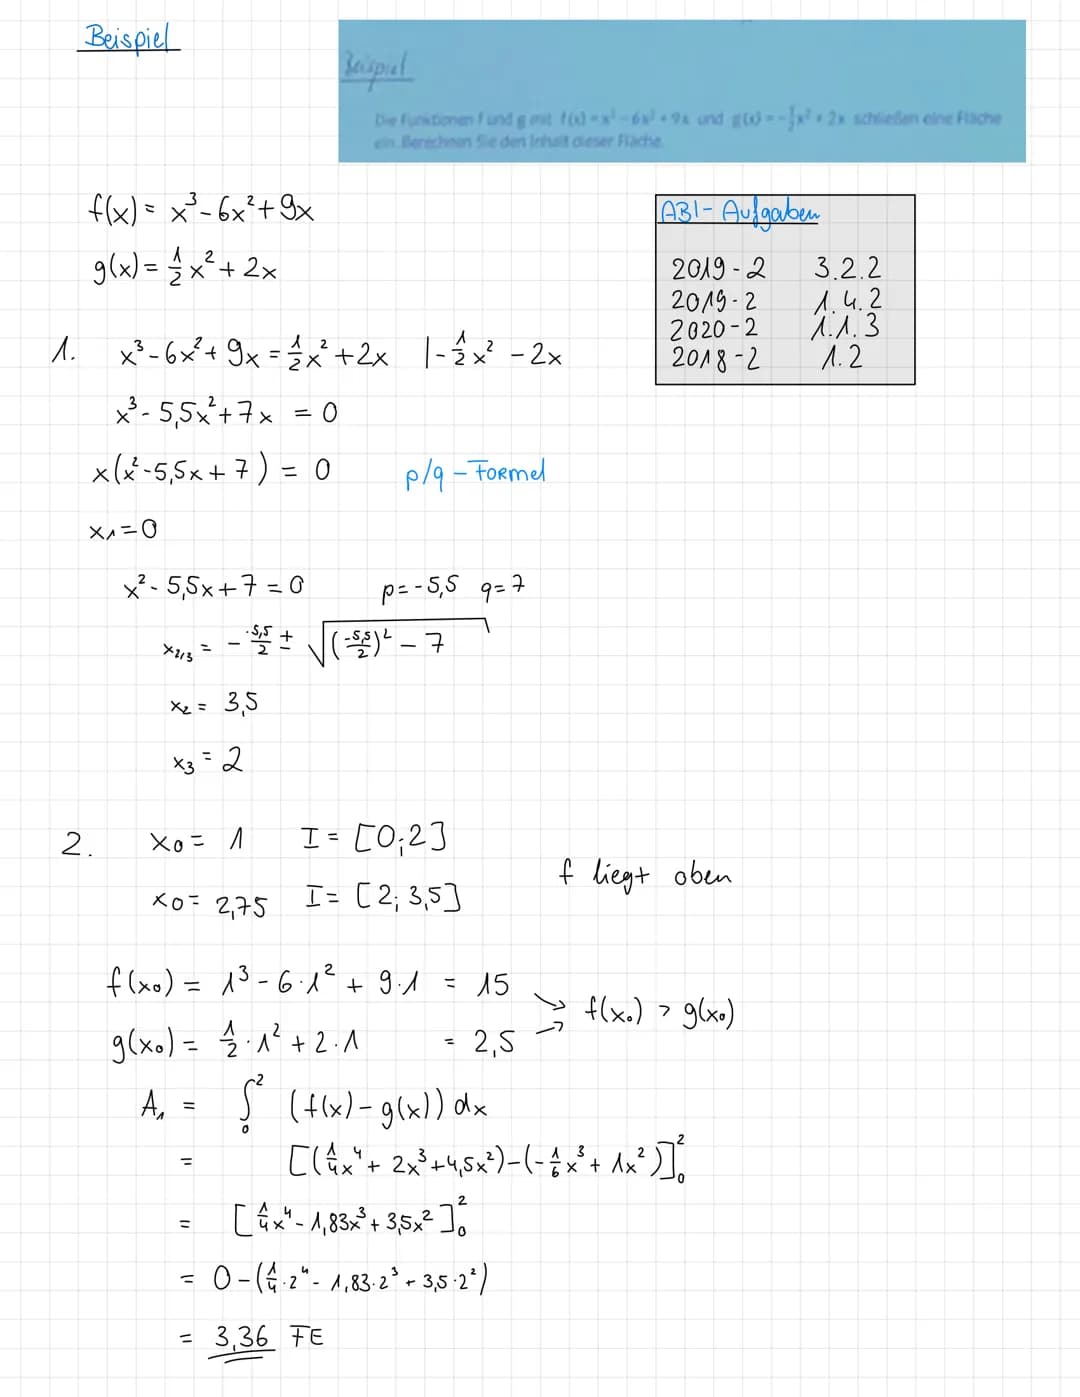 Beispiel
Beispiel
Die Funktionen f und g mit f(x) = x³ - 6x² + 9x und g(x) = -½x² + 2x schließen eine Fläche
ein. Berechnen Sie den Inhalt dieser Fläche.
f(x) = x³ - 6x² + 9x
g(x) = ½x² + 2x
ABI - Aufgaben
2019 - 2 3.2.2
2019 - 2 1.4.2
2020 - 2 1.1.3
2018 - 2 1.2
1. x³ - 6x² + 9x = ½x² + 2x |-½x² - 2x
x³ - 5,5x² + 7x = 0
x(x² - 5,5x + 7) = 0 p/q - Formel
x₁ = 0
x² - 5,5x + 7 = 0 p = -5,5 q = 7
x₂/₃ = - -5,5/2 ± √((-5,5/2)² - 7)
x₂ = 3,5
x₃ = 2
2. x₀ = 1 I = [0;2]
x₀ = 2,75 I = [2; 3,5]
f liegt oben
f(x₀) = 1³ - 6·1² + 9·1 = 15
g(x₀) = ½·1² + 2·1 = 2,5
→ f(x₀) > g(x₀)
A₁ = ∫₀² (f(x) - g(x)) dx
= [(¼x⁴ + 2x³ + 4,5x²) - (-⅙x³ + 1x²)]₀²
= [¼x⁴ - 1,83x³ + 3,5x²]₀²
= 0 - (¼·2⁴ - 1,83·2³ + 3,5·2²)
= 3,36 FE